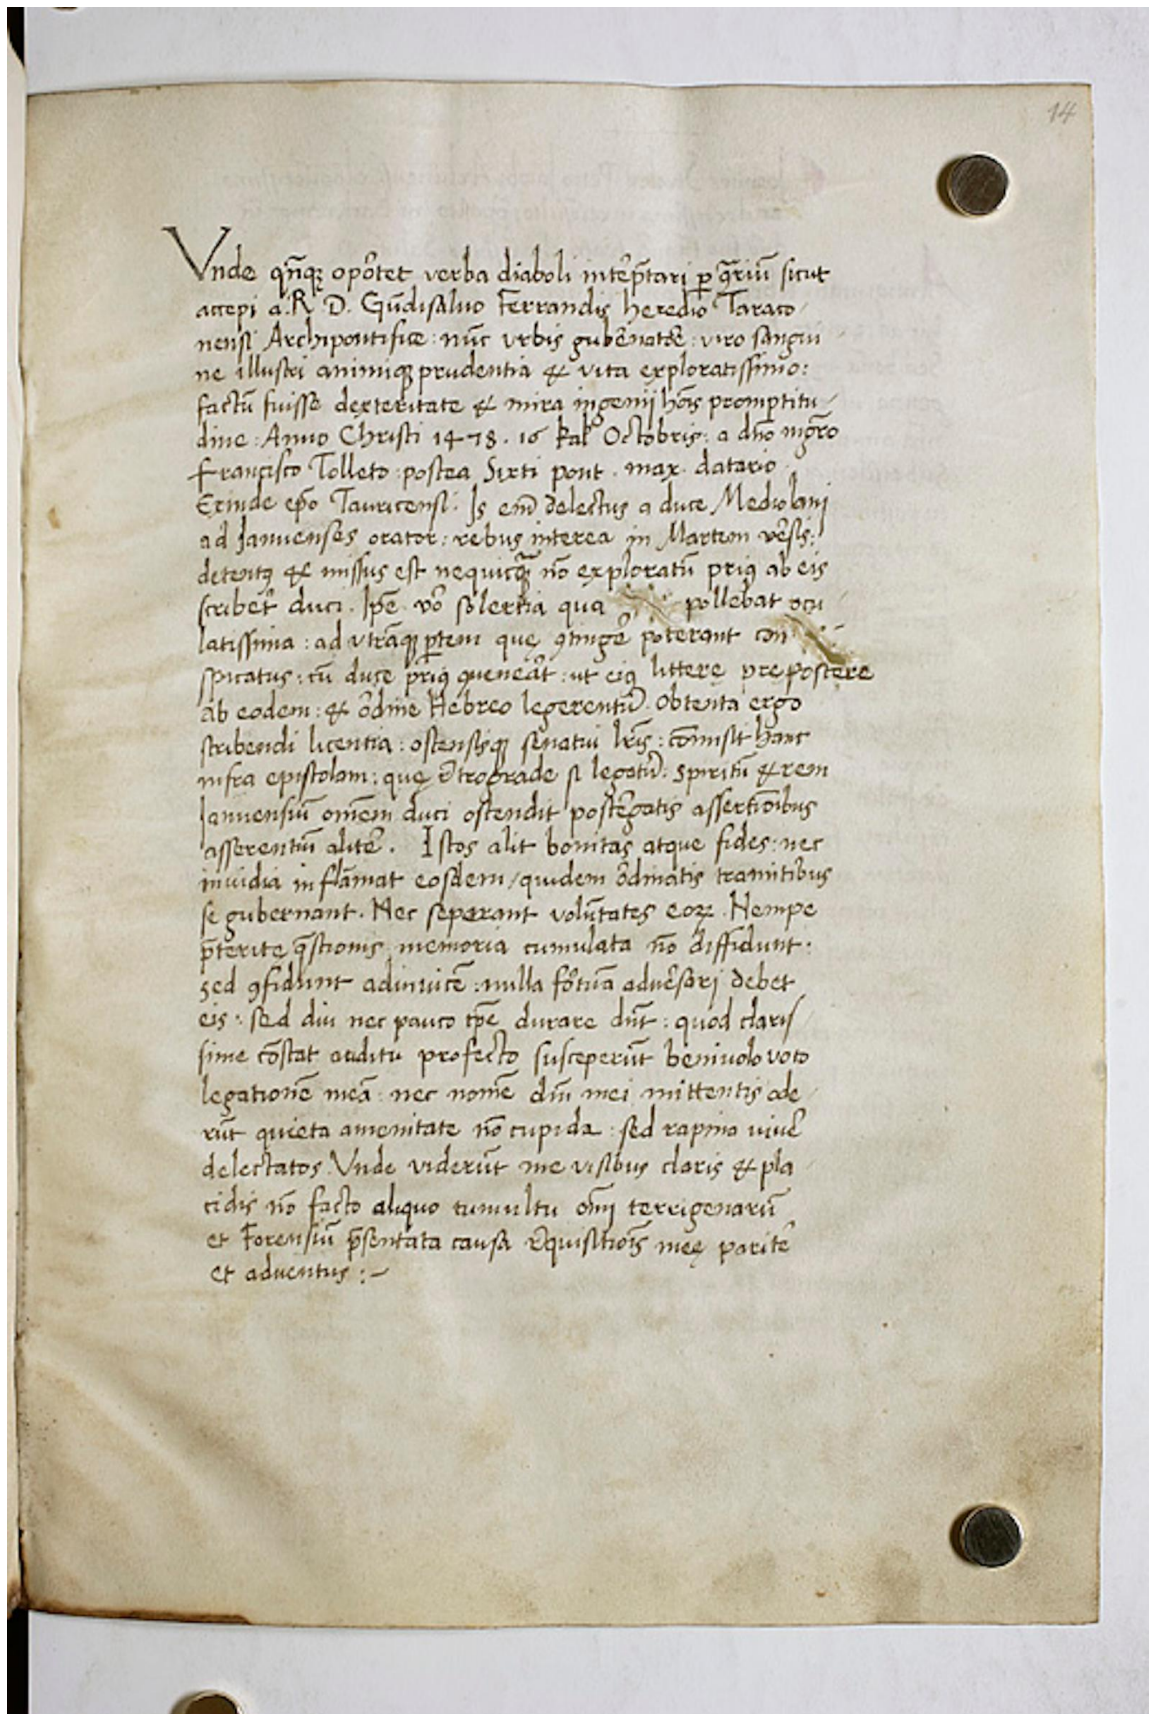 14
Vnde qñqꝫ opõtet verba diaboli intẽp̃tari ꝑ q̃rium̃ sicut
accepi a. R. D. Gũdisaluo Ferrandis heredio Taraco/
nensi Archipontifice: nũc vrbis gubẽnatõe: viro sangui
ne illustri animiqꝫ prudentia & vita exploratissimo:
factũ fuisse dexteritate & mira ingenij hõis promptitu/
dine: Anno Christi 1478. 16 kal̃ Octobris: a dño mg̃ro
Francisco Tolleto: postea Sixti pont. max. datario.
Exinde ep̃o Tauricensi. Is em̃ delectus a duce Mediolani
ad Januenses orator: rebus interea in Martem vẽsis:
detentꝰ & missus est nequicq̃ꝫ nõ exploratũ priꝰ ab eis
scribet̃ duci. Ip̃e võ solertia qua pollebat ocu
latissima: ad vtrãqꝫ ꝑtem quę ꝯtingẽ poterant con
spicatus: cũ duce priꝰ ꝯueneãt: ut eiꝰ litterę prepostere
ab eodem: & õdine Hebreo legerentũ. Obtenta ergo
scribendi licentia: ostensisqꝫ senatui lr̃is: cõmisit hanc
infra epistolam: quę r̃trograde si legatũ: spiritũ & rem
Januensiũ om̃em duci ostendit postẽgatis assertiõibus
asserentiũ alitẽ. Istos alit bonitas atque fides: nec
inuidia inflãmat eosdem/quidem õdinatis tramitibus
se gubernant. Nec seperant volũtates eoꝝ. Nempe
p̃terite q̃stionis memoria cumulata nõ diffidunt:
sed ꝯfidunt adinuicẽ: nulla fõtuã aduẽsarj debet
eis: sed diu nec pauco tp̃e durare dñt: quod claris/
sime cõstat auditu profecto susceperũt beniuolo voto
legationẽ meã: nec nomẽ dñi mei mittentis ode/
rũt quieta amenitate nõ cupida: sed rapina viuẽ
delectatos. Vnde viderũt me visibus claris & pla/
cidis nõ facto aliquo tumultu om̃j terrigenarũ
et Forensiũ p̃sentata causa r̃quisitiõis meę paritẽ
et aduentus:~